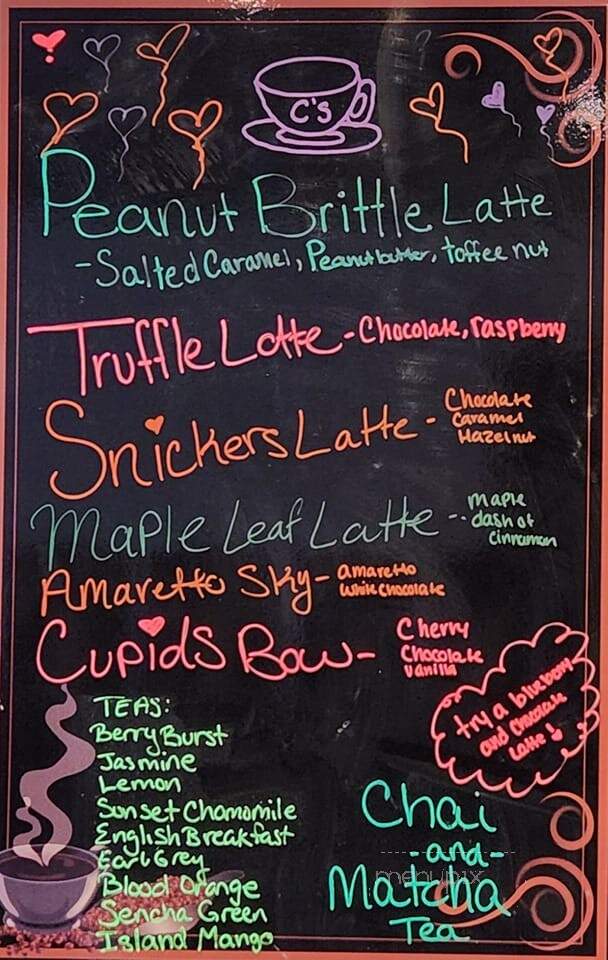 C's
Peanut Brittle Latte
-Salted Caramel, Peanut butter, toffee nut
Truffle Latte - Chocolate, raspberry
Snickers Latte - Chocolate
Caramel
Hazelnut
Maple Leaf Latte -- maple
dash of
cinnamon
Amaretto Sky - amaretto
White Chocolate
Cupids Bow - Cherry
Chocolate
Vanilla
try a blueberry
and Chocolate
Latte!
TEAS:
Berry Burst
Jasmine
Lemon
Sunset Chamomile
English Breakfast
Earl Grey
Blood Orange
Sencha Green
Island Mango
Chai
-and-
Matcha
Tea
menupix